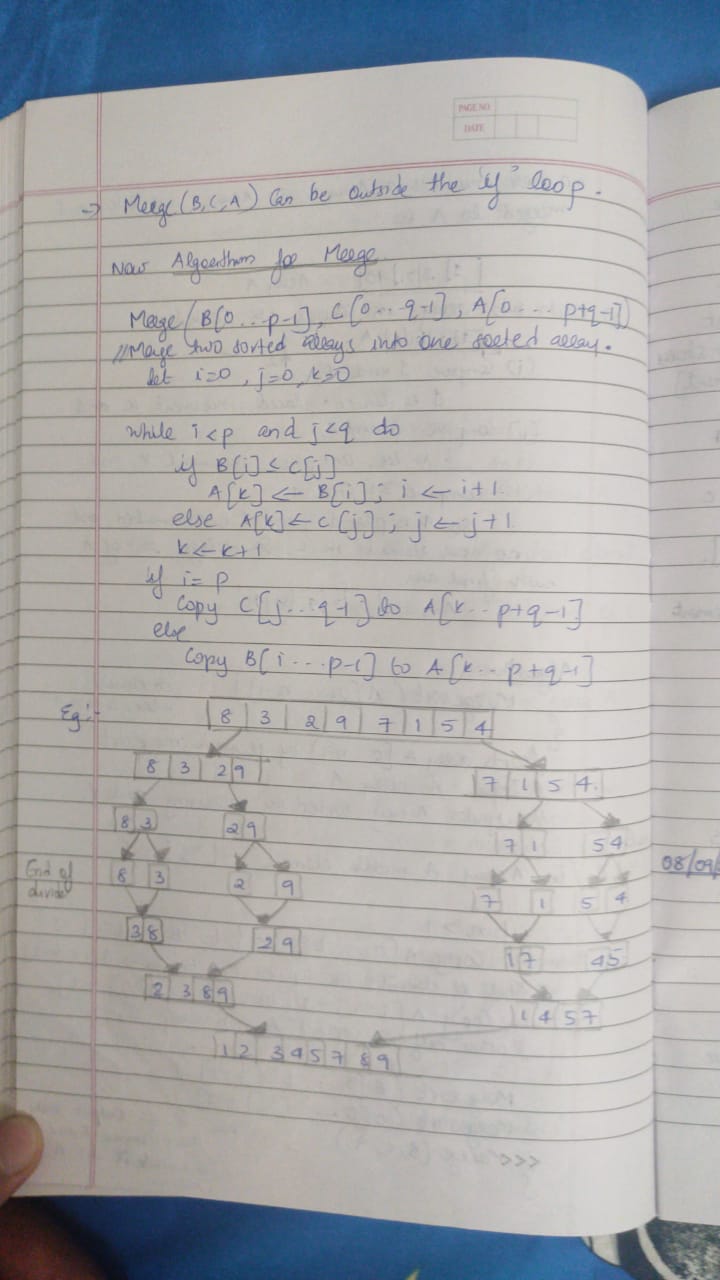 PAGE NO
DATE
→ Merge (B, C, A) Can be outside the "if" loop.
Now Algorithm for Merge
Merge (B[0...p-1], C[0...q-1], A[0...p+q-1])
//Merge two sorted arrays into one sorted array.
let i=0, j=0, k=0
while i<p and j<q do
if B[i] ≤ C[j]
A[k] ← B[i]; i ← i+1
else A[k] ← C[j]; j ← j+1
k ← k+1
if i = p
Copy C[j...q-1] to A[k...p+q-1]
else
Copy B[i...p-1] to A[k...p+q-1]
Eg:-
8 3 2 9 7 1 5 4
8 3 2 9 7 1 5 4
8 3 2 9 7 1 5 4
End of
divide
8 3 2 9 7 1 5 4
3 8 2 9 1 7 4 5
2 3 8 9 1 4 5 7
1 2 3 4 5 7 8 9
08/09/